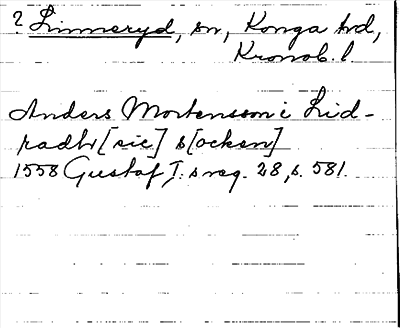 ? Linneryd, sn, Konga hd,
Kronob. l.
Anders Mortensson i Lid-
radh [sic] s[ocken]
1558 Gustaf I:s reg. 28, s. 581.